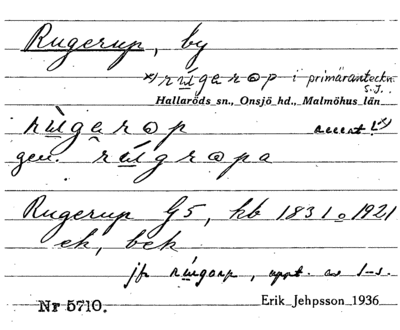 Rugerup, by
x) rúgarop i primäranteckn.
S.J.
Hallaröds sn., Onsjö hd., Malmöhus län
rùgarop accent! x)
gen. rúgropa
Rugerup G5, kb 1831 o 1921
ek, bek
jfr rúgarp, uppt. av I-s.
Nr 5710. Erik Jehpsson 1936